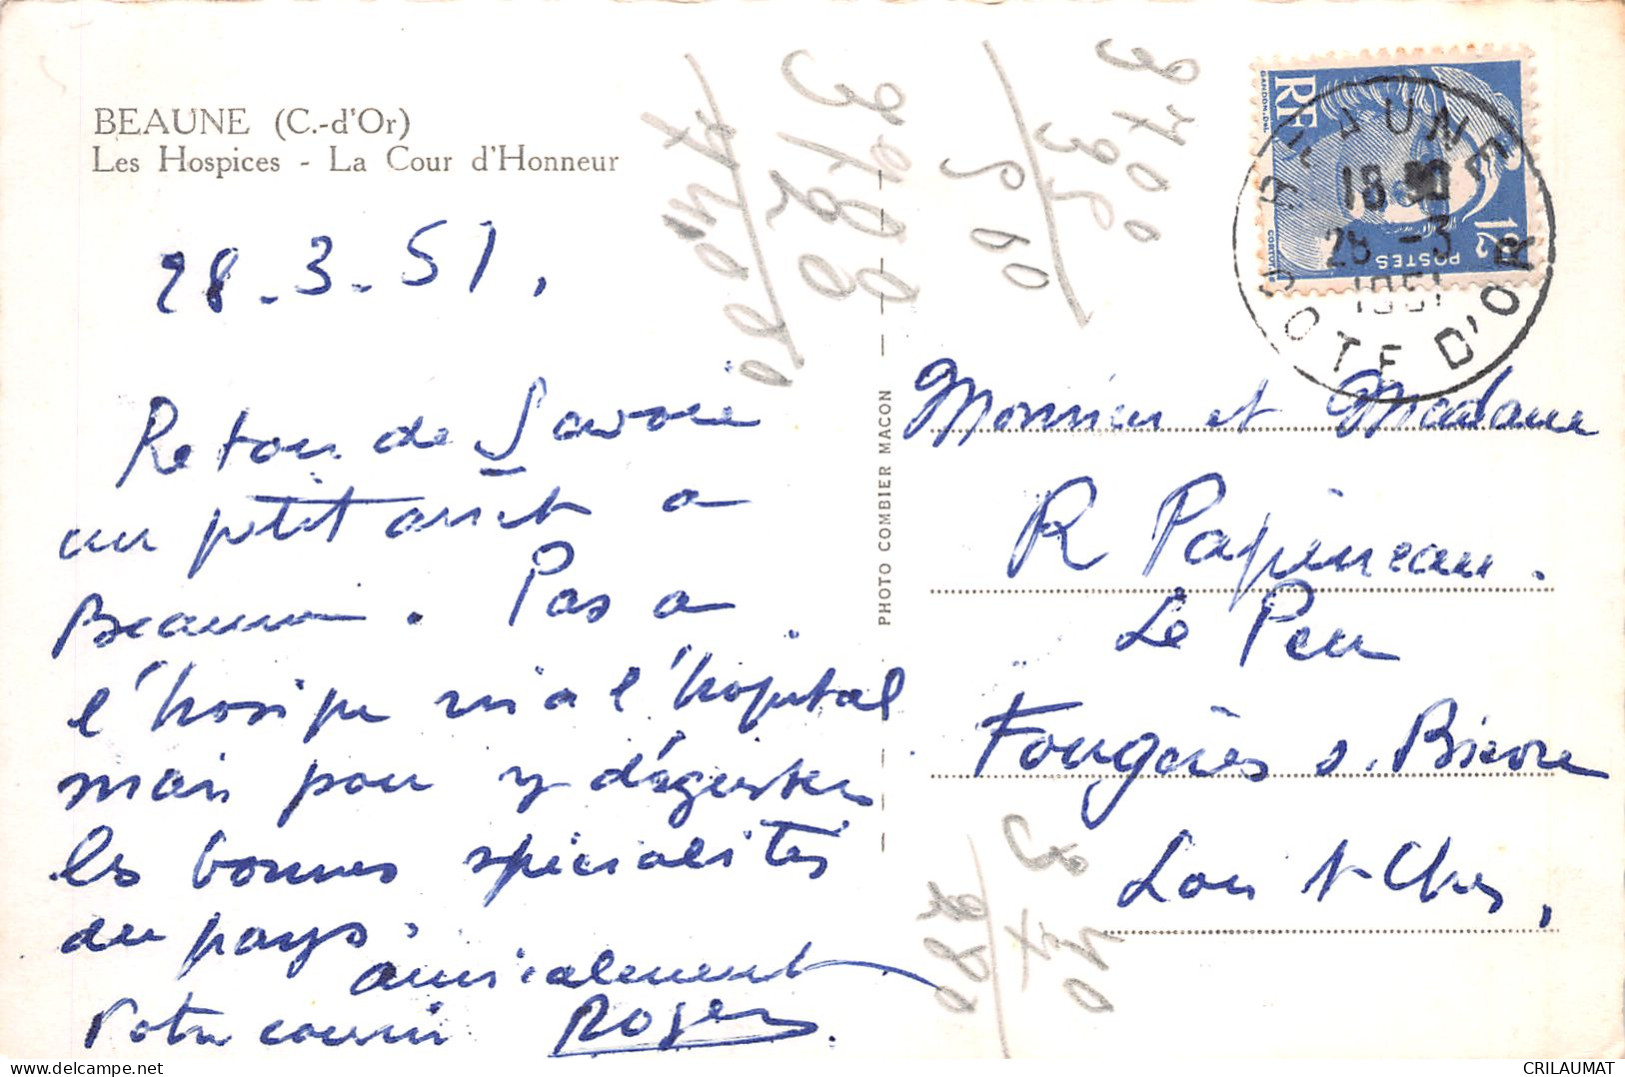 BEAUNE (C.-d'Or)
Les Hospices - La Cour d'Honneur
28.3.51.
Retour de Savoie
un petit arret a
Beaune. Pas a
l'hospice ni a l'hôpital
mais pour y déguster
les bonnes spécialités
du pays.
amicalement
Votre cousin Roger.
PHOTO COMBIER MACON
RF
POSTES
12
GANDON.DEL
BEAUNE
18
28 -3
1951
COTE D'OR
Monsieur et Madame
R Papineau.
Le Peu
Fougères s. Bièvre
Loir & Cher,
3700
935
560
CRILAUMAT